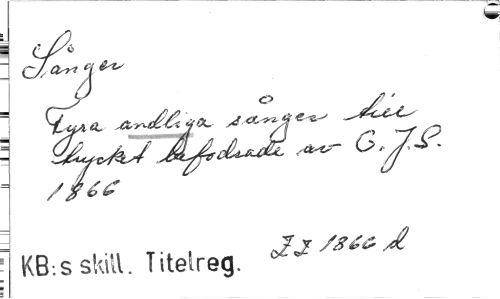 Sånger
Fyra andliga sånger till
trycket befodrade av C. J. S.
1866
ZZ 1866 d
KB:s skill. Titelreg.